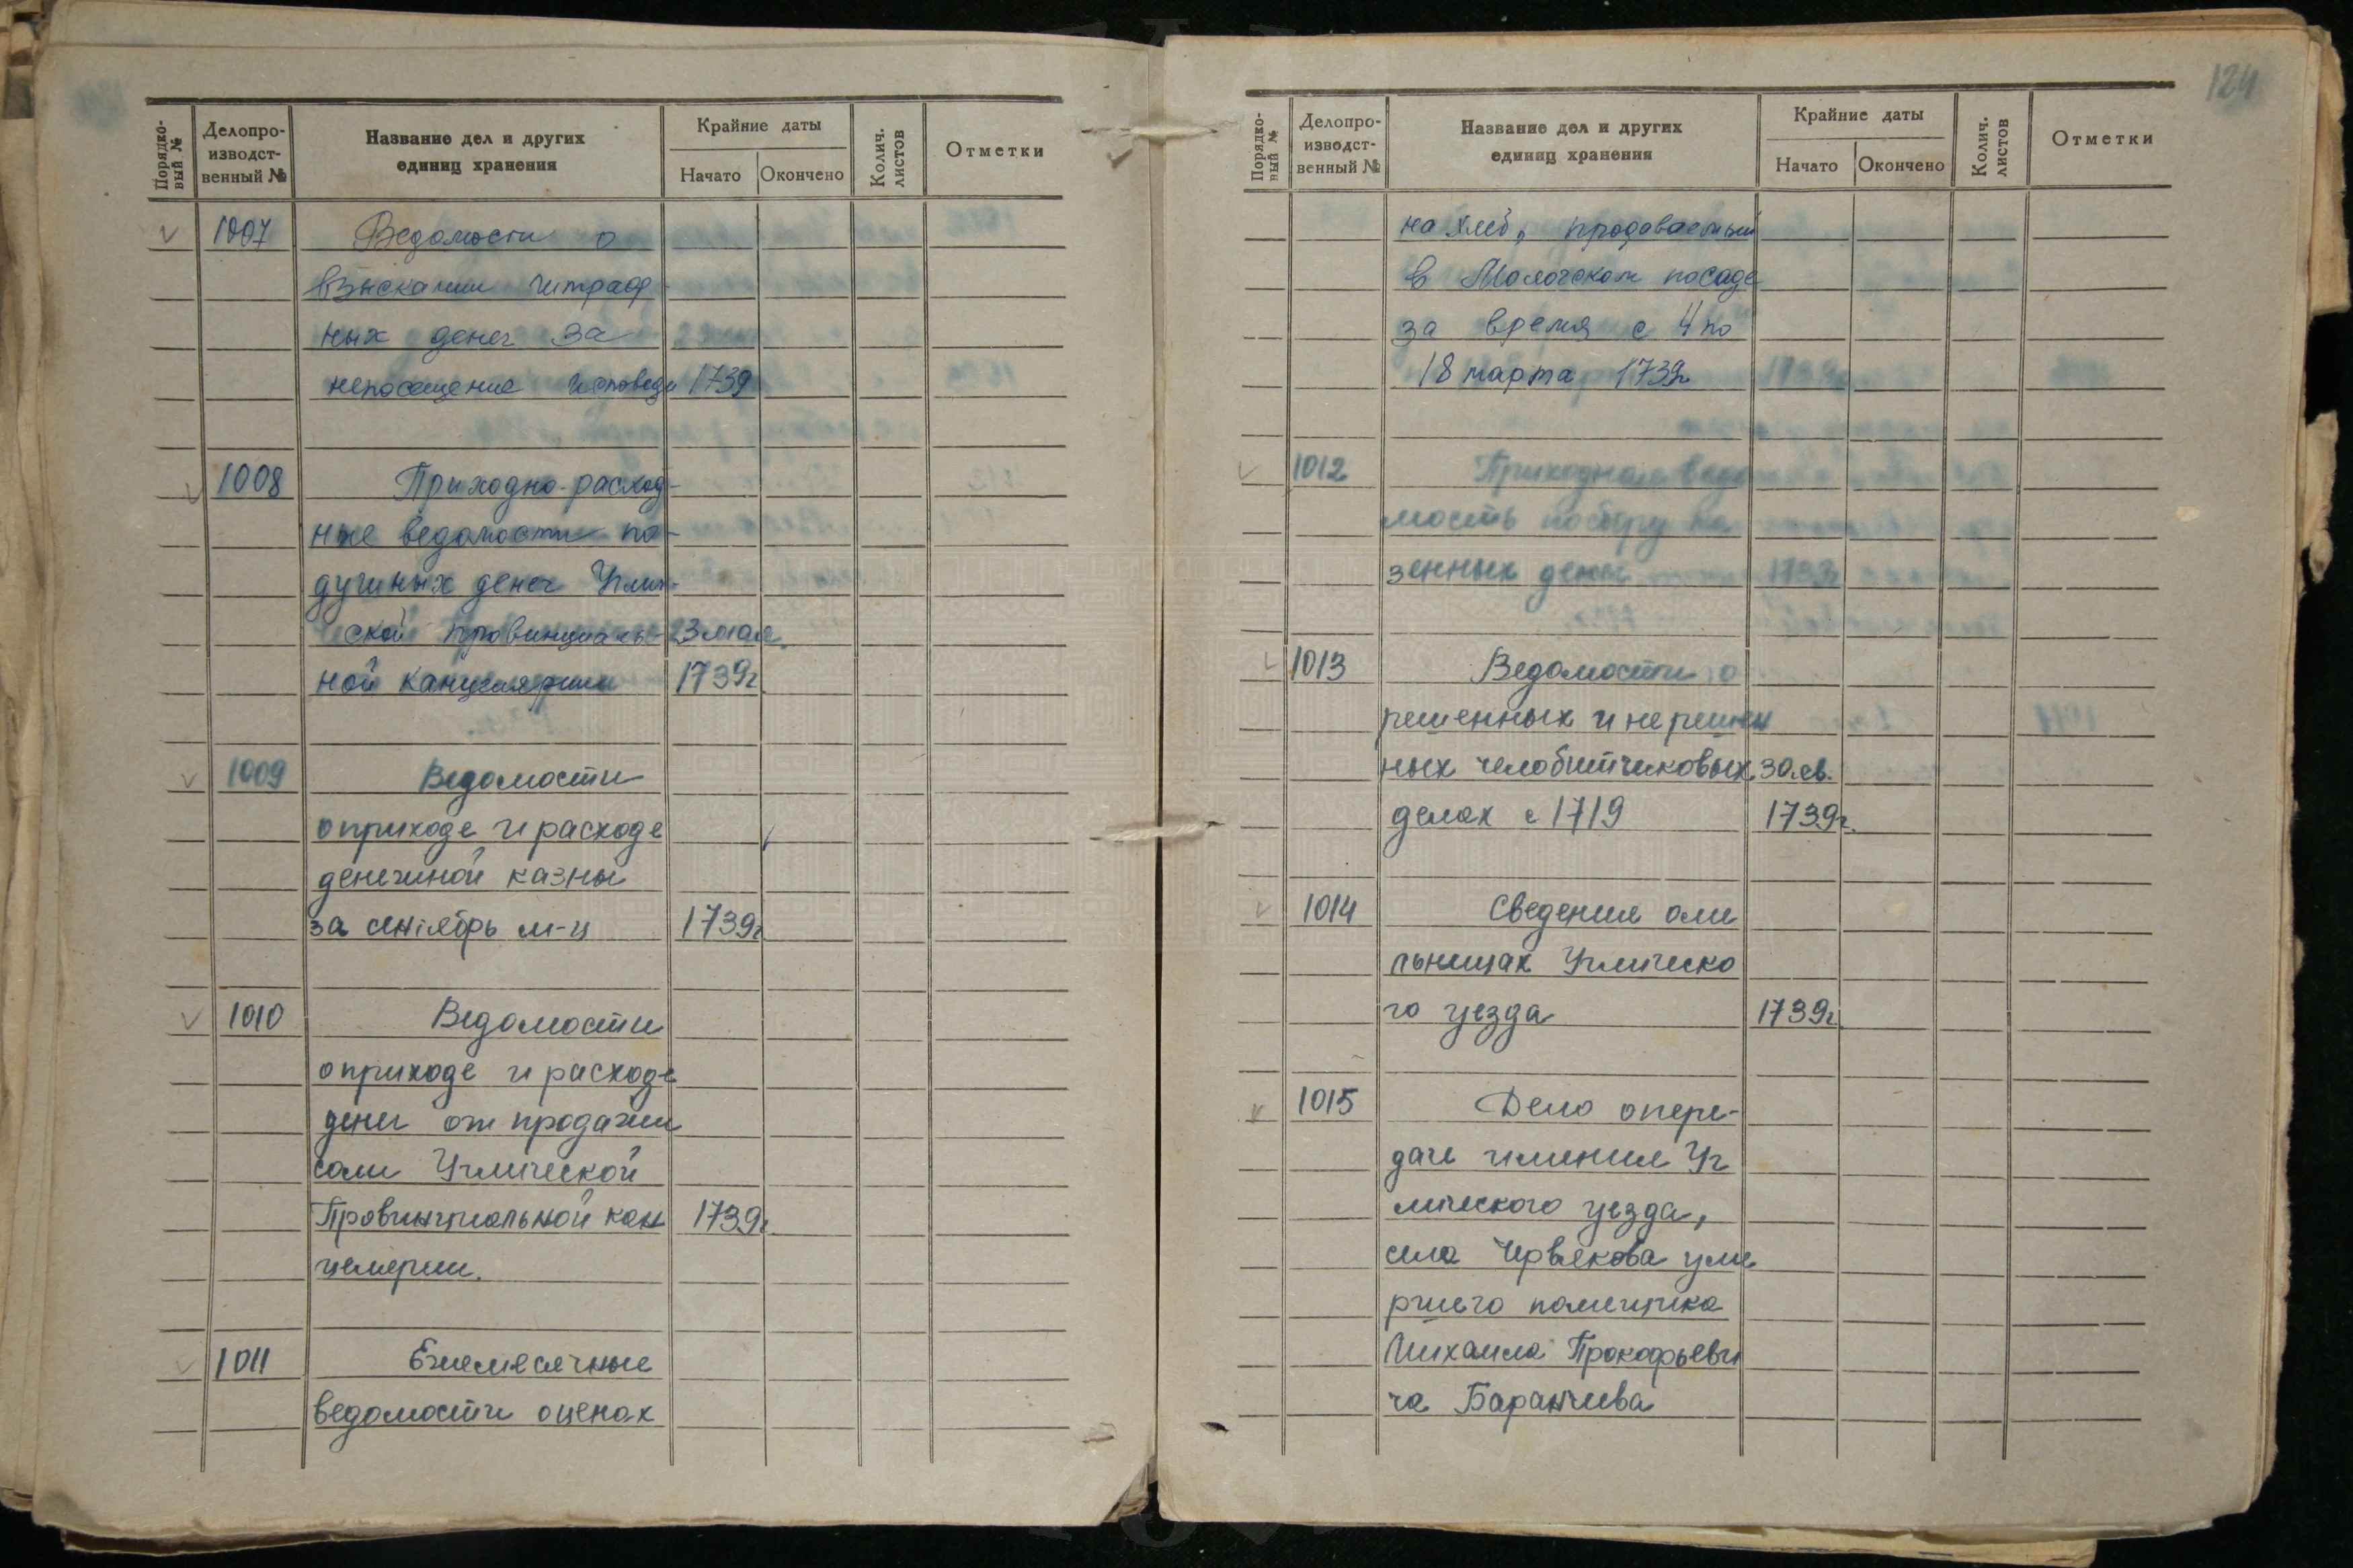 Порядко-
вый №
Делопро-
изводст-
венный №
Название дел и других
единиц хранения
Крайние даты
Начато
Окончено
Колич.
листов
Отметки
1007 Ведомости о
взыскании штраф
ных денег за
непосещение исповеди 1739
1008 Приходно-расход-
ные ведомости по-
душных денег Углич-
ской провинциаль- 23 мая
ной канцелярии 1739г
1009 Ведомости
о приходе и расходе
денежной казны
за сентябрь м-ц 1739г
1010 Ведомости
о приходе и расходе
денег от продажи
соли Угличской
Провинциальной кан 1739г
целярии.
1011 Ежемесячные
ведомости о ценах
124
Порядко-
вый №
Делопро-
изводст-
венный №
Название дел и других
единиц хранения
Крайние даты
Начато
Окончено
Колич.
листов
Отметки
на хлеб, продаваемый
в Мологском посаде
за время с 4 по
18 марта 1739г
1012 Приходная ведо
мость по сбору ка
зенных денег 1739г
1013 Ведомости о
решенных и нерешен
ных челобитчиковых 30 яв.
делах с 1719 1739г.
1014 Сведения о ме
льницах Угличско
го уезда 1739г
1015 Дело о пере-
даче имения Уг
личского уезда,
села Червякова уме
ршего помещика
Михаила Прокофьеви
ча Баранчева